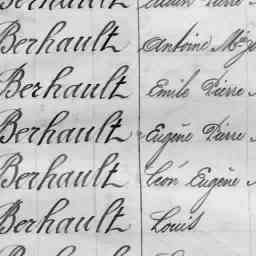 Berhault Antoine
Berhault Emile Pierre
Berhault Eugène Pierre
Berhault Léon Eugène
Berhault Louis